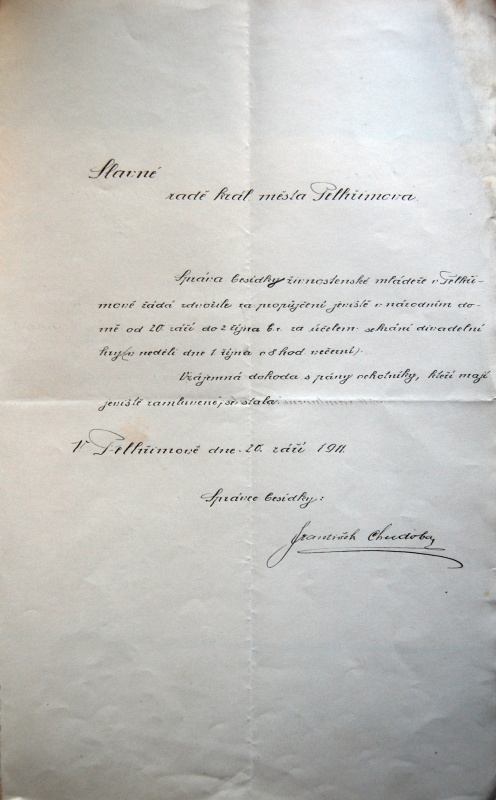 Slavné
radě král. města Pelhřimova.
Správa besídky živnostenské mládeže v Pelhři-
mově žádá zdvořile za propůjčení jeviště v národním do-
mě od 20 září do 2 října b.r. za účelem sehrání divadelní
hry (v neděli dne 1 října o 8 hod. večerní).
Vzájemná dohoda s pány ochotníky, kteří mají
jeviště zamluvené, se stala.
V Pelhřimově dne 20. září 1911.
Správce besídky:
František Chudoba